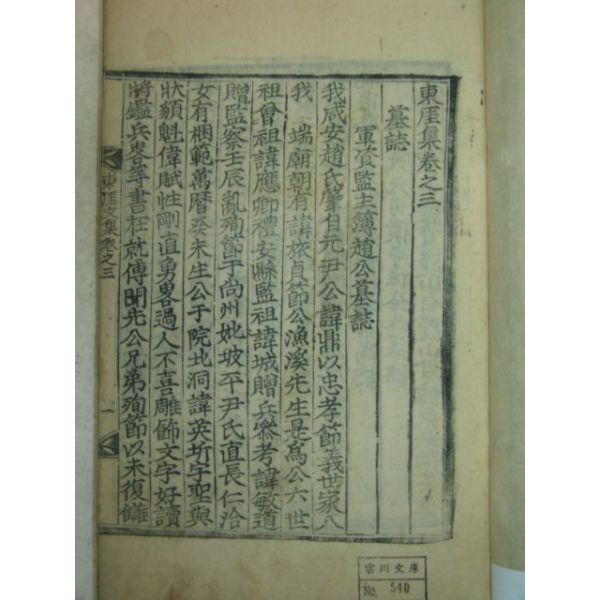 東厓集卷之三
墓誌
軍資監主簿趙公墓誌
我咸安趙氏肇自元尹公諱鼎以忠孝節義世家入
我 端廟朝有諱旅貞節公漁溪先生是爲公六世
祖曾祖諱應卿禮安縣監祖諱城贈兵參考諱敏道
贈監察壬辰亂殉節于尚州妣坡平尹氏直長仁洽
女有梱範萬曆癸未生公于院北洞諱英圻字聖與
狀貌魁偉賦性剛直勇畧過人不喜雕飾文字好讀
將鑑兵畧等書在就傅聞先公兄弟殉節以未復讎
東厓文集卷之三
一
雲川文庫
No. 540